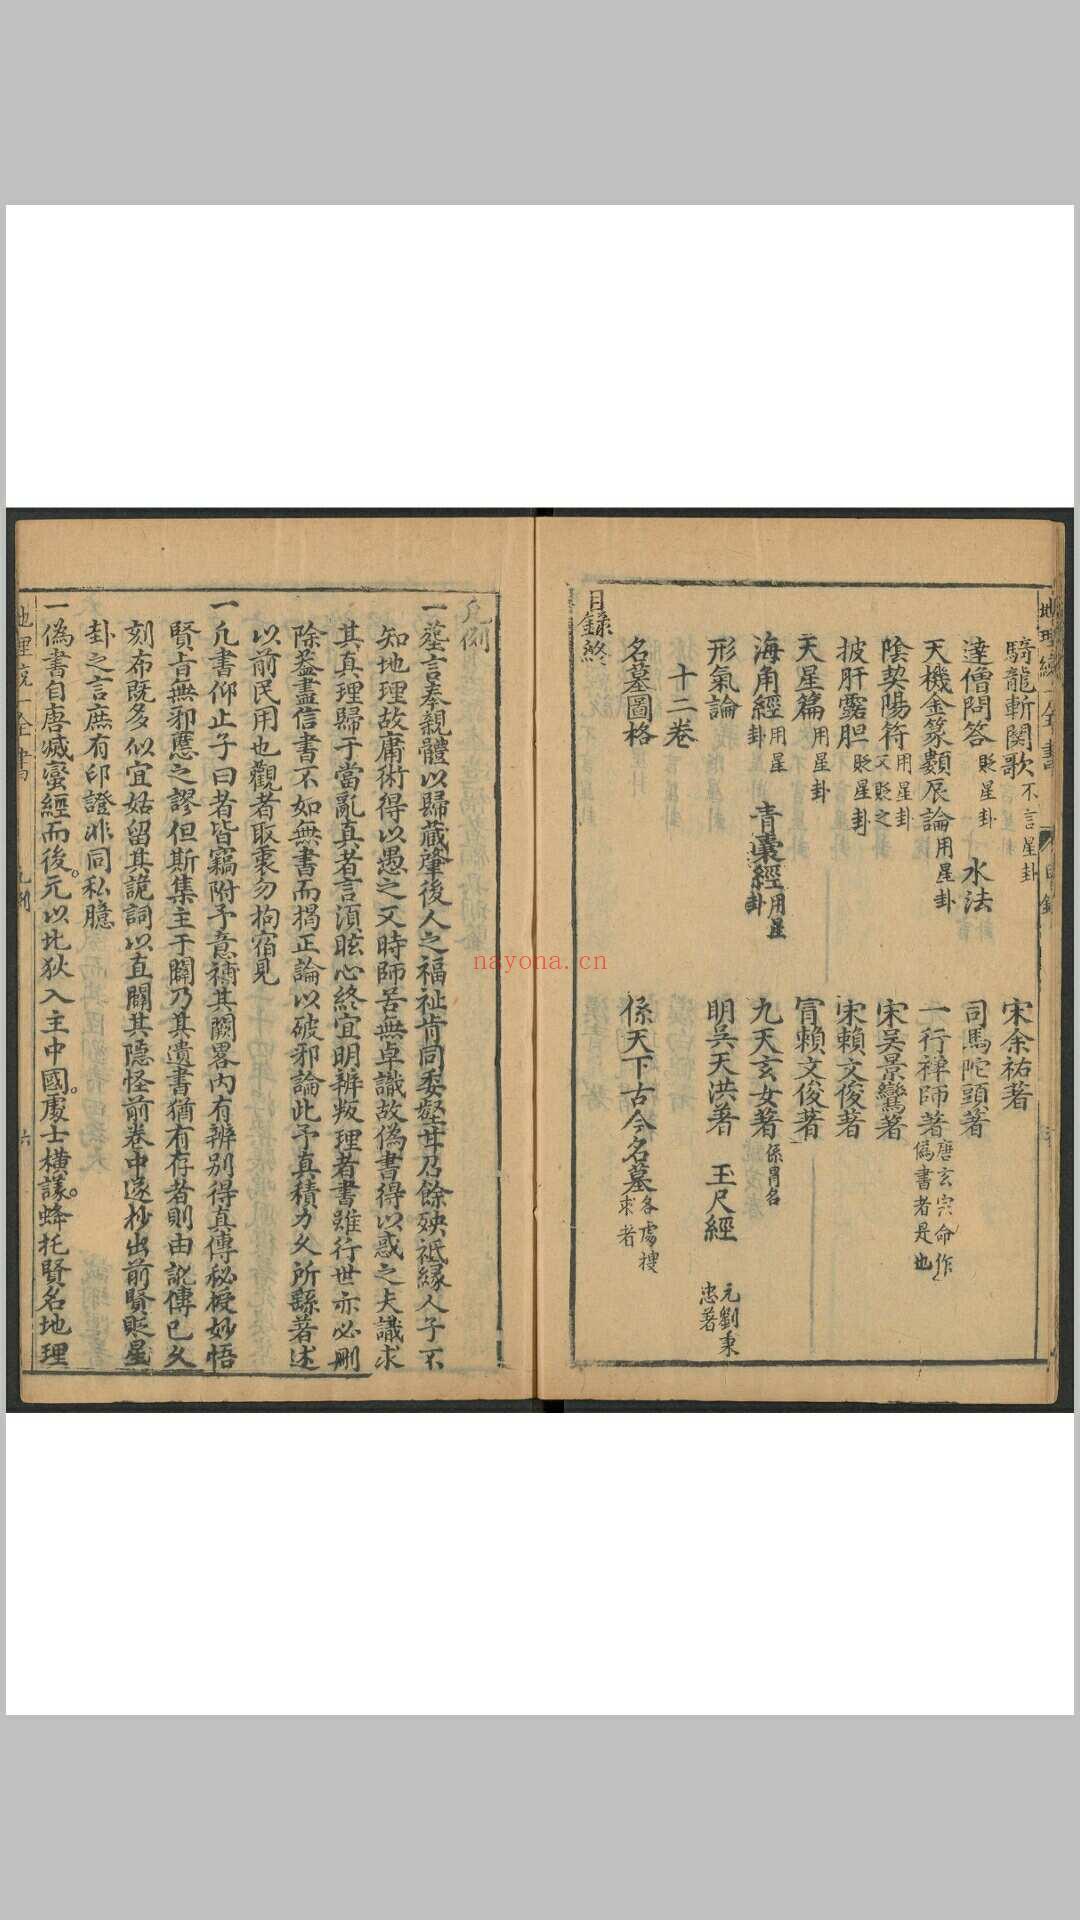 騎龍斬関歌不言星卦 宋余祐著
達僧問答貶星卦 水法 司馬陀頭著
天機金篆顙辰論用星卦 一行禅師著唐玄宗命作偽書者是也
陰契陽符用星卦又貶之 宋吴景鸞著
披肝露胆貶星卦 宋賴文俊著
天星篇用星卦 冐賴文俊著
海角經用星卦 青囊經用星卦 九天玄女著係冐名
形氣論 明吳天洪著 玉尺經 元劉秉忠著
十二卷
名墓圖格 係天下古今名墓各處搜求者
目錄終
凡例
一塟言奉親體以歸蔵肇後人之福祉肯同委壑毋乃餘殃祗縁人子不
知地理故庸術得以愚之又時師苦無卓識故偽書得以惑之夫識求
其真理歸于當亂真者言湏眩心終宜明辨叛理者書雖行世亦必刪
除葢盡信書不如無書而揭正論以破邪論此予真積力久所繇著述
以前民用也觀者取衷勿拘宿見
一凢書仰止子曰者皆竊附予意補其闕畧内有辨别得真傳秘授妙悟
賢㫖無邪慝之謬但斯集主于闢乃其遺書猶有存者則由訛傳已久
刻布既多似宜姑留其詭詞以直闢其隠怪前卷中遂抄出前賢貶星
卦之言庶有印證非同私臆
一偽書自唐滅蠻經而後。元以北狄入主中國。處士横議。蜂托賢名地理
地理統一全書 凡例 六
nayona.cn